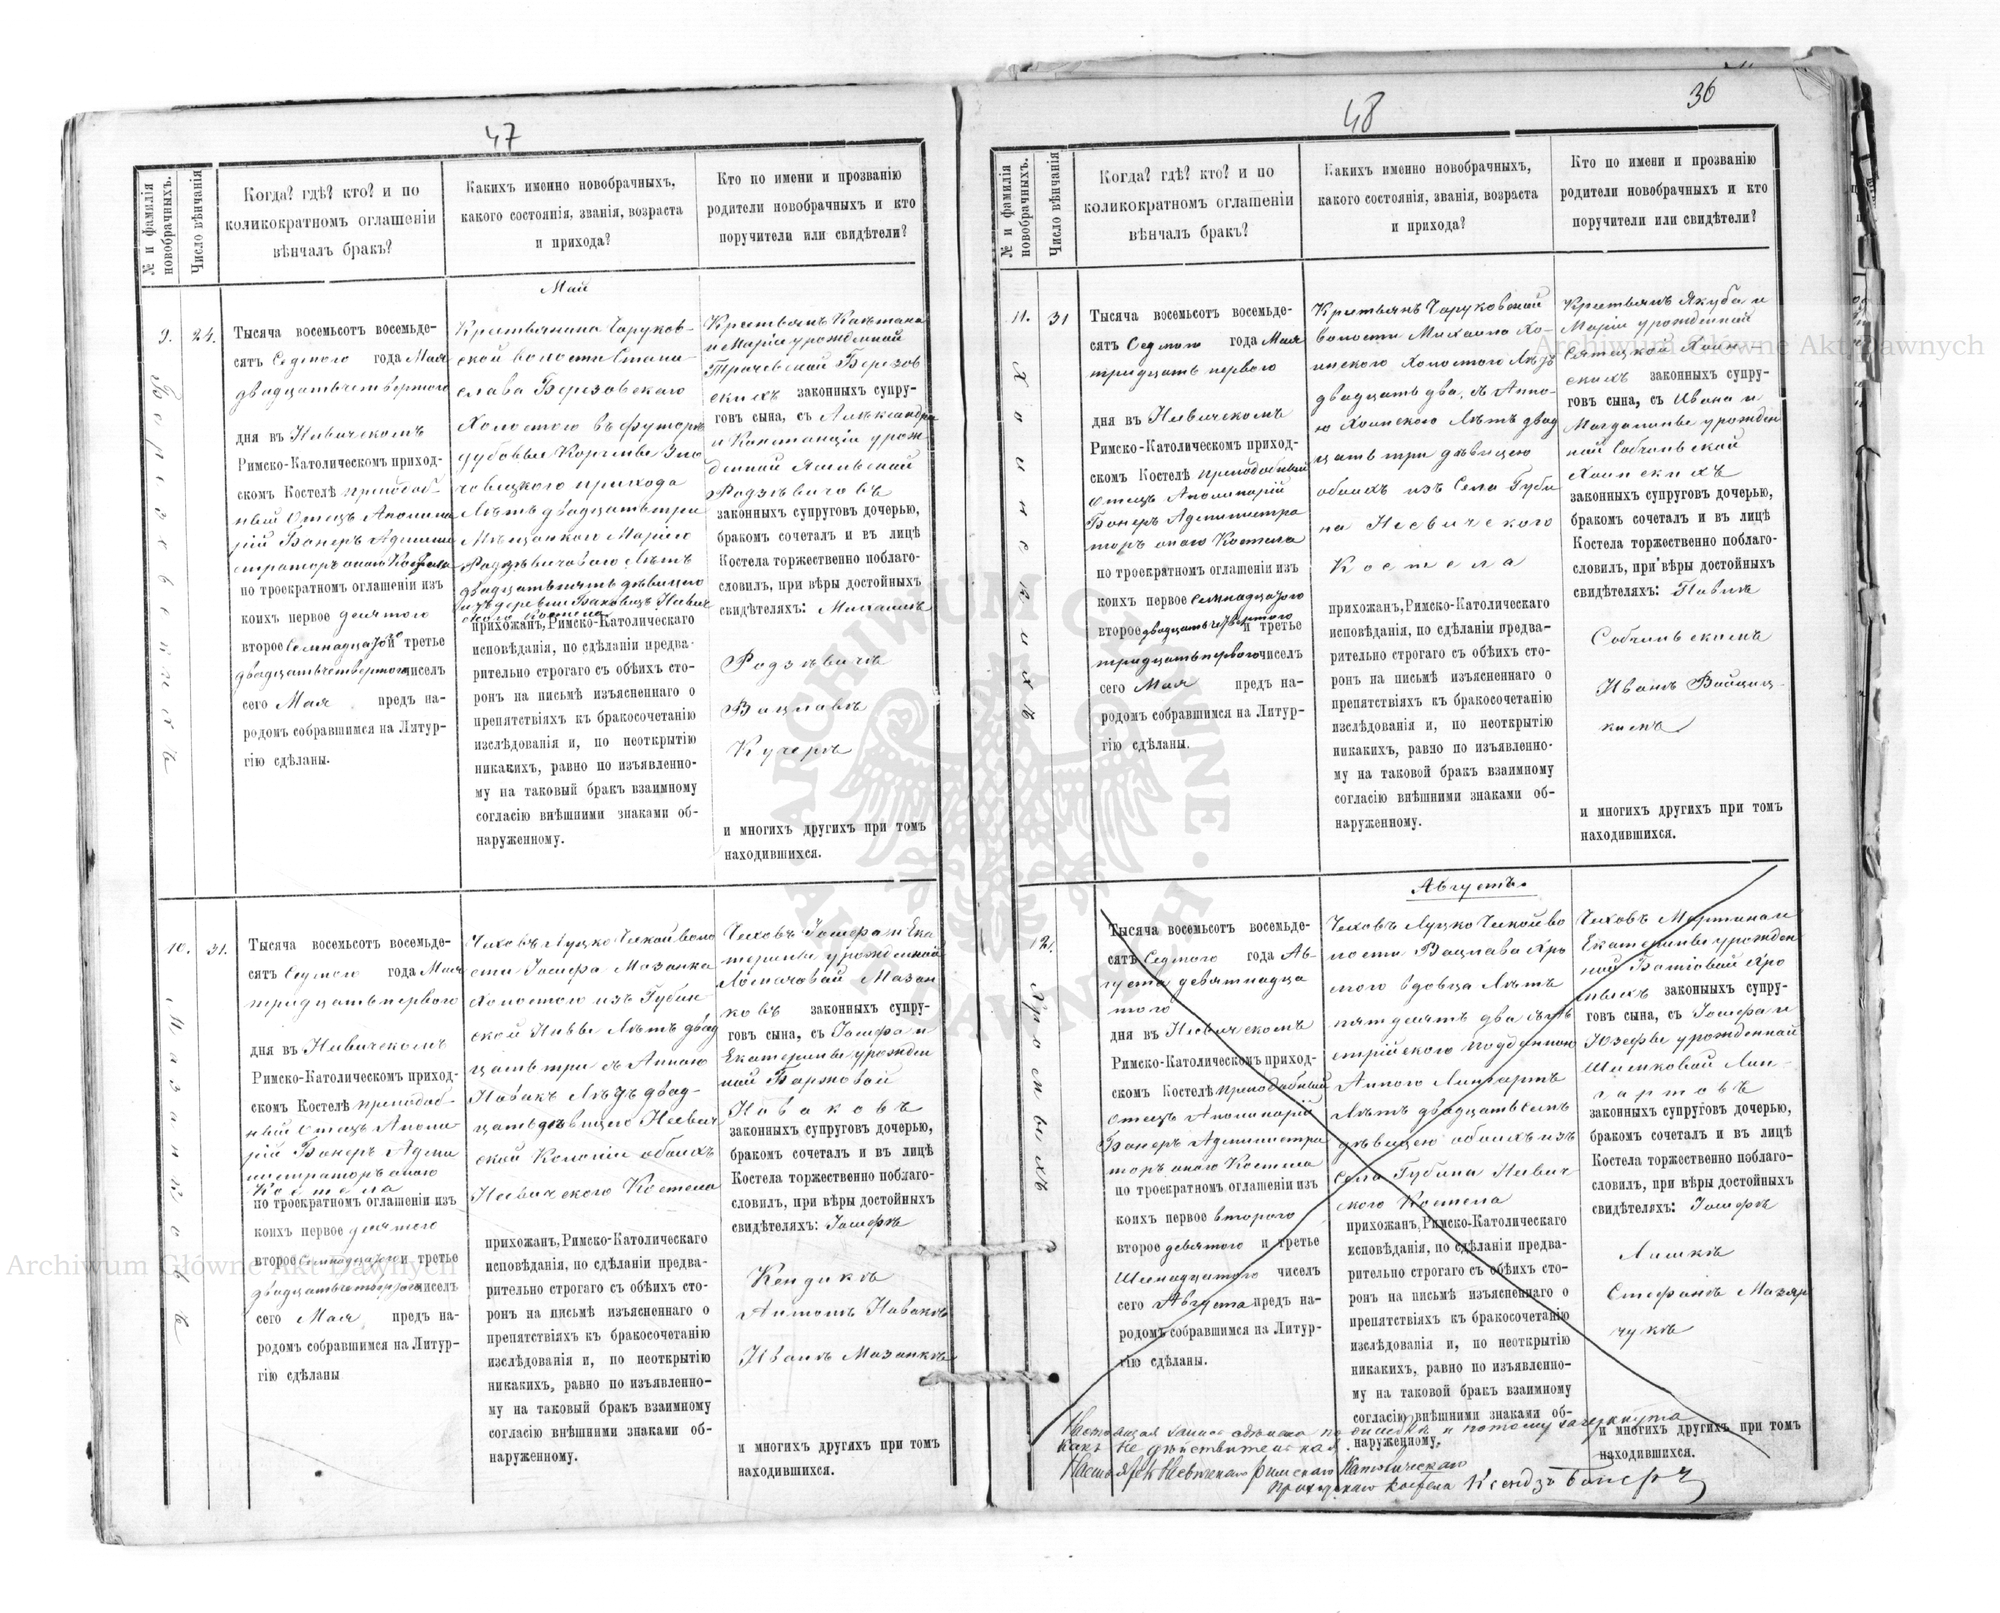 47
№ и фамилія новобрачныхъ.
Число вѣнчанія
Когда? гдѣ? кто? и по
коликократномъ оглашеніи
вѣнчалъ бракъ?
Какихъ именно новобрачныхъ,
какого состоянія, званія, возраста
и прихода?
Кто по имени и прозванію
родители новобрачныхъ и кто
поручители или свидѣтели?
Май
9.
24.
Тысяча восемьсотъ восемьде-
сятъ Седмого года Мая
двадцатьчетвертого
дня въ
Римско-Католическомъ приход-
скомъ Костелѣ преподоб-
ный Отецъ Аполина
рій Банеръ Админи
страторъ оного Костела
по троекратномъ оглашеніи изъ
коихъ первое десятого
второе Семнадцатого третье
двадцатьчетвертого чиселъ
сего Мая предъ на-
родомъ собравшимся на Литур-
гію сдѣланы.
Крестьянина Чаруков-
ской волости Стани
слава Березовского
Холостого
прихода
Лѣтъ двадцатьтри
Мѣщанкою Маріею
Лѣтъ
двадцатьпять дѣвицею
изъ деревни
прихожанъ, Римско-Католическаго
исповѣданія, по сдѣланіи предва-
рительно строгаго съ обѣихъ сто-
ронъ на письмѣ изъясненнаго о
препятствіяхъ къ бракосочетанію
изслѣдованія и, по неоткрытію
никакихъ, равно по изъявленно-
му на таковый бракъ взаимному
согласію внѣшними знаками об-
наруженному.
Крестьянъ Каетана
и Маріи урожденной
Березов
скихъ законныхъ супру-
говъ сына, съ Александра
и Констанціи урож-
денной
Родзѣвичовъ
законныхъ супруговъ дочерью,
бракомъ сочеталъ и въ лицѣ
Костела торжественно поблаго-
словилъ, при вѣры достойныхъ
свидѣтеляхъ:
Родзѣвичъ
Вацлавъ
Кучеръ
и многихъ другихъ при томъ
находившихся.
10.
31.
Мазанковъ
Тысяча восемьсотъ восемьде-
сятъ Седмого года Мая
тридцатьпервого
дня въ
Римско-Католическомъ приход-
скомъ Костелѣ преподоб-
ный Отецъ Аполина
рій Банеръ Адми
нистраторъ оного
Костела
по троекратномъ оглашеніи изъ
коихъ первое десятого
второе Семнадцатого и третье
двадцатьчетвертого чиселъ
сего Мая предъ на-
родомъ собравшимся на Литур-
гію сдѣланы
Чеховъ
Іосифа Мазанка
Холостого изъ Губин
ской Нивы Лѣтъ двад
цатьтри съ Анною
Новакъ Лѣтъ двад-
цать дѣвицею
ской Колоніи обоихъ
Костела
прихожанъ, Римско-Католическаго
исповѣданія, по сдѣланіи предва-
рительно строгаго съ обѣихъ сто-
ронъ на письмѣ изъясненнаго о
препятствіяхъ къ бракосочетанію
изслѣдованія и, по неоткрытію
никакихъ, равно по изъявленно-
му на таковый бракъ взаимному
согласію внѣшними знаками об-
наруженному.
Чеховъ Іосифа и Ека
терины урожденной
Мазан
ковъ законныхъ супру-
говъ сына, съ Іосифа и
Екатерины урожден
ной
Новаковъ
законныхъ супруговъ дочерью,
бракомъ сочеталъ и въ лицѣ
Костела торжественно поблаго-
словилъ, при вѣры достойныхъ
свидѣтеляхъ: Іосифъ
Антонъ Новакъ
Иванъ Мазанкъ
и многихъ другихъ при томъ
находившихся.
48
36
№ и фамилія новобрачныхъ.
Число вѣнчанія
Когда? гдѣ? кто? и по
коликократномъ оглашеніи
вѣнчалъ бракъ?
Какихъ именно новобрачныхъ,
какого состоянія, званія, возраста
и прихода?
Кто по имени и прозванію
родители новобрачныхъ и кто
поручители или свидѣтели?
11.
31
Тысяча восемьсотъ восемьде-
сятъ Седмого года Мая
тридцать первого
дня въ
Римско-Католическомъ приход-
скомъ Костелѣ преподобный
Отецъ Аполинарій
Банеръ Администра
торъ оного Костела
по троекратномъ оглашеніи изъ
коихъ первое Семнадцатого
второе двадцатьчетвертого и третье
тридцатьпервого чиселъ
сего Мая предъ на-
родомъ собравшимся на Литур-
гію сдѣланы.
Крестьянъ Чаруковской
волости Михаила Хо-
инского Холостого Лѣтъ
двадцать два, съ Анно-
ю Хоинского Лѣтъ двад
цать три дѣвицею
обоихъ изъ Села Губи
на
Костела
прихожанъ, Римско-Католическаго
исповѣданія, по сдѣланіи предва-
рительно строгаго съ обѣихъ сто-
ронъ на письмѣ изъясненнаго о
препятствіяхъ къ бракосочетанію
изслѣдованія и, по неоткрытію
никакихъ, равно по изъявленно-
му на таковой бракъ взаимному
согласію внѣшними знаками об-
наруженному.
Крестьянъ Якуба и
Маріи урожденной
Хоин-
скихъ законныхъ супру-
говъ сына, съ Ивана и
Магдалины урожден
ной
Хоинскихъ
законныхъ супруговъ дочерью,
бракомъ сочеталъ и въ лицѣ
Костела торжественно поблаго-
словилъ, при вѣры достойныхъ
свидѣтеляхъ:
Иванъ
и многихъ другихъ при томъ
находившихся.
Августъ.
12.
Тысяча восемьсотъ восемьде-
сятъ Седмого года Ав-
густа девятнадца
того
дня въ
Римско-Католическомъ приход-
скомъ Костелѣ преподобный
Отецъ Аполинарій
Банеръ Администра
торъ оного Костела
по троекратномъ оглашеніи изъ
коихъ первое второго
второе девятого и третье
чиселъ
сего Августа предъ на-
родомъ собравшимся на Литур-
гію сдѣланы.
Чеховъ
Вацлава Хро
мого вдовца Лѣтъ
пятдесятъ два
Анною Лингартъ
Лѣтъ двадцать
дѣвицею обоихъ изъ
Села Губина
ского Костела
прихожанъ, Римско-Католическаго
исповѣданія, по сдѣланіи предва-
рительно строгаго съ обѣихъ сто-
ронъ на письмѣ изъясненнаго о
препятствіяхъ къ бракосочетанію
изслѣдованія и, по неоткрытію
никакихъ, равно по изъявленно-
му на таковой бракъ взаимному
согласію внѣшними знаками об-
наруженному.
Чеховъ Мартина и
Екатерины урожден
ной
законныхъ супру-
говъ сына, съ Іосифа и
Юзефы урожденной
Лин-
гартовъ
законныхъ супруговъ дочерью,
бракомъ сочеталъ и въ лицѣ
Костела торжественно поблаго-
словилъ, при вѣры достойныхъ
свидѣтеляхъ: Іосифъ
Стефанъ Мазяр
чукъ
и многихъ другихъ при томъ
находившихся.
Настоящая запись сдѣлана по ошибкѣ и потому зачеркнута
какъ не дѣйствительная
Римского Католического
Приходского Костела Ксендзъ Банеръ
Archiwum Główne Akt Dawnych
Archiwum Główne Akt Dawnych
ARCHIWUM GŁÓWNE AKT DAWNYCH